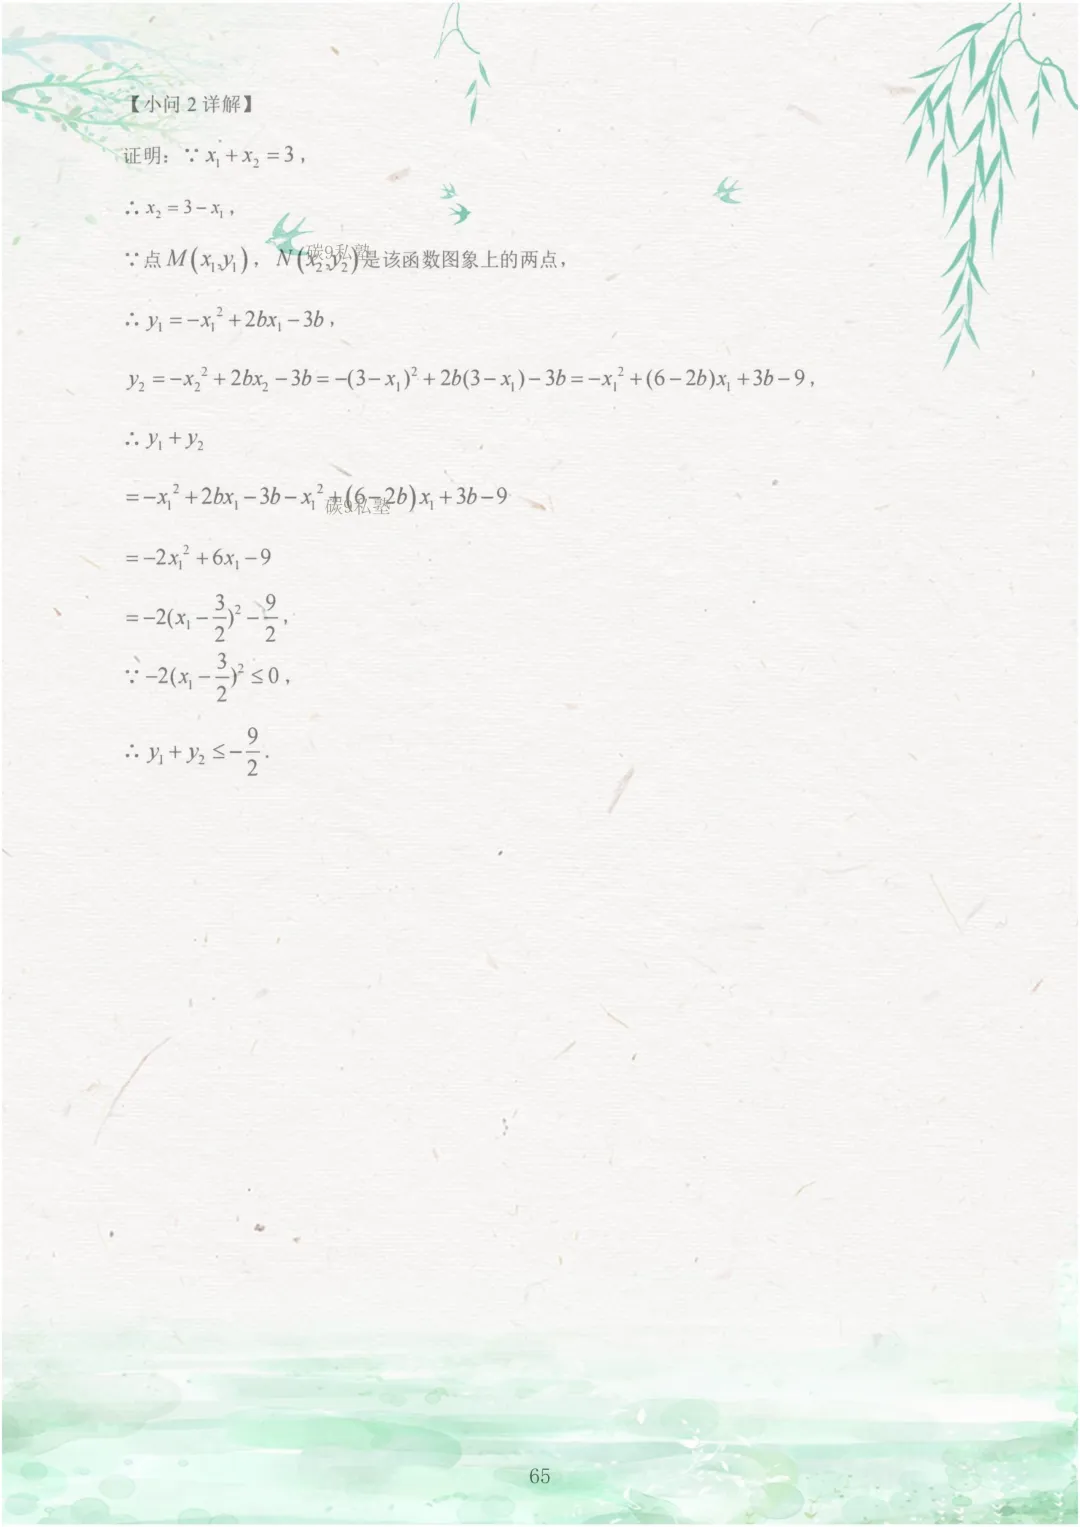 【小问 2 详解】
证明：∵ x₁ + x₂ = 3，
∴ x₂ = 3 − x₁，
碳9私塾
∵点 M(x₁,y₁)，N(x₂,y₂)是该函数图象上的两点，
∴ y₁ = −x₁² + 2bx₁ − 3b，
y₂ = −x₂² + 2bx₂ − 3b = −(3 − x₁)² + 2b(3 − x₁) − 3b = −x₁² + (6 − 2b)x₁ + 3b − 9，
∴ y₁ + y₂
= −x₁² + 2bx₁ − 3b − x₁² + (6 − 2b)x₁ + 3b − 9
碳9私塾
= −2x₁² + 6x₁ − 9
= −2(x₁ − 3/2)² − 9/2，
∵ −2(x₁ − 3/2)² ≤ 0，
∴ y₁ + y₂ ≤ −9/2．
65